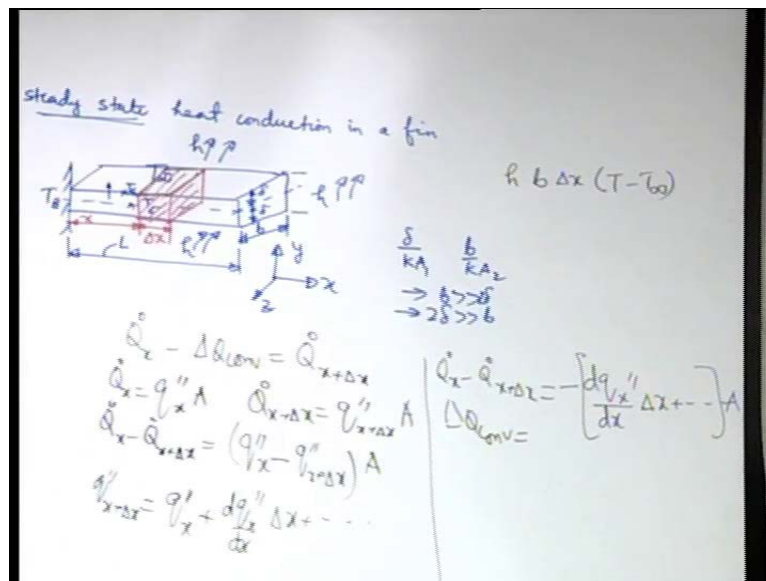 steady state heat conduction in a fin
h
T∞
h
h b Δx (T-T∞)
δ
δ
b
x
Δx
h
L
y
x
z
δ/kA₁ b/kA₂
→ b>>δ
→ 2δ>>b
Q̇x - ΔQconv = Q̇x+Δx
Q̇x = q″x A Q̇x+Δx = q″x+Δx A
Q̇x - Q̇x+Δx = (q″x - q″x+Δx) A
q″x+Δx = q″x + dq″x/dx Δx + - - - -
Q̇x - Q̇x+Δx = -[dqx″/dx Δx + - - -] A
ΔQconv =